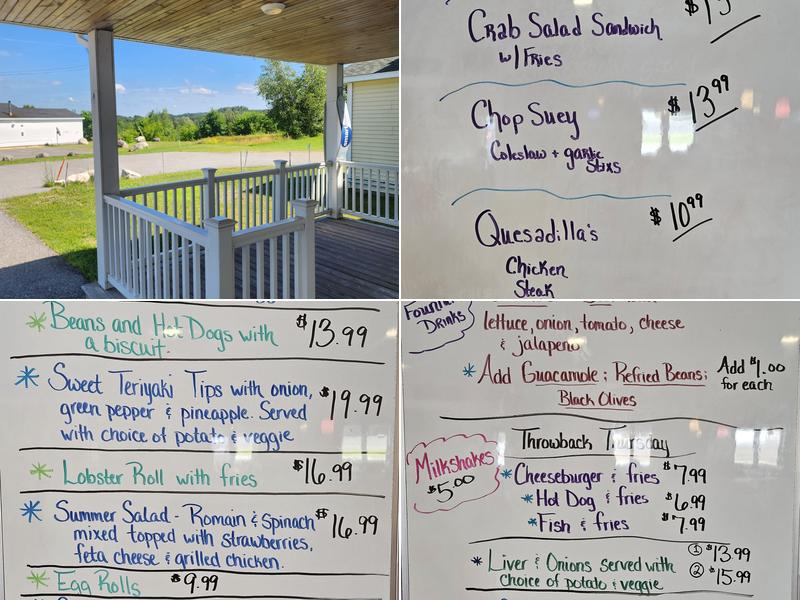 Crab Salad Sandwich
w/ Fries
Chop Suey $13.99
Coleslaw + garlic
Stixs
Quesadilla's $10.99
Chicken
Steak
*Beans and Hot Dogs with $13.99
a biscuit.
* Sweet Teriyaki Tips with onion, $19.99
green pepper & pineapple. Served
with choice of potato & veggie
* Lobster Roll with fries $16.99
* Summer Salad - Romain & Spinach $16.99
mixed topped with strawberries,
feta cheese & grilled chicken.
* Egg Rolls $9.99
Fountain
Drinks
lettuce, onion, tomato, cheese
& jalapeno
* Add Guacamole; Refried Beans; Add $1.00
Black Olives for each
Throwback Thursday
Milkshakes
$5.00
* Cheeseburger & fries $7.99
* Hot Dog & fries $6.99
* Fish & fries $7.99
* Liver & Onions served with ① $13.99
choice of potato & veggie ② $15.99